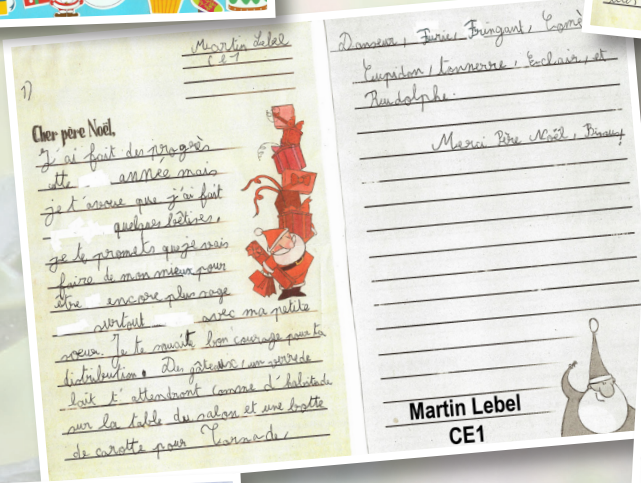 Martin Lebel
CE-1
1)
Cher père Noël,
J'ai fait des progrès
cette année mais
je t'avoue que j'ai fait
quelques bêtises,
je te promets que je vais
faire de mon mieux pour
être encore plus sage
surtout avec ma petite
soeur. Je te souaite bon courage pour ta
distribution. Des gâteaux, un verre de
lait t'attendront comme d'habitude
sur la table du salon et une botte
de carotte pour Tornade,
Danseur, Furie, Fringant, Comè
Cupidon, tonnerre, Eclair, et
Rudolphe.
Merci Père Noël, Bisous!
Martin Lebel
CE1